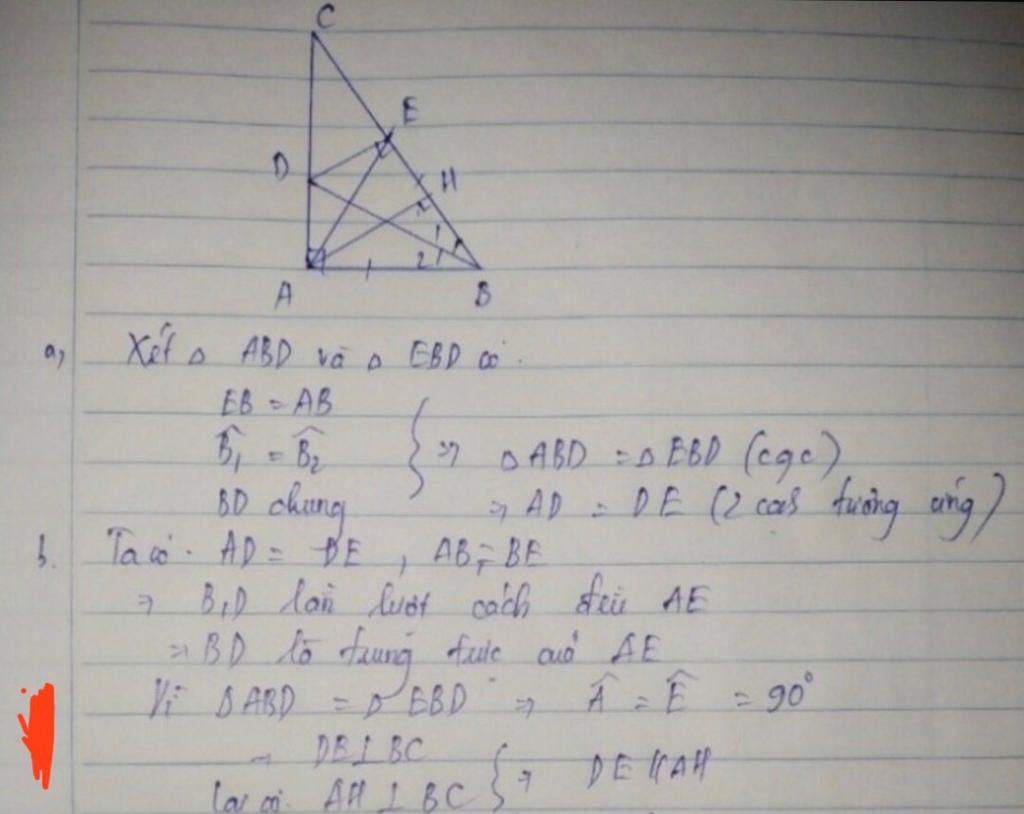 C
E
D
H
1
2
A
B
a, Xét Δ ABD và Δ EBD có.
EB = AB
B̂₁ = B̂₂ } => Δ ABD = Δ EBD (cgc)
BD chung => AD = DE (2 cạnh tương ứng)
b. Ta có. AD = DE , AB = BE
=> B,D lần lượt cách đều AE
=> BD là trung trực của AE
Vì Δ ABD = Δ EBD => Â = Ê = 90°
→ DE ⊥ BC
Lại có. AH ⊥ BC } => DE // AH